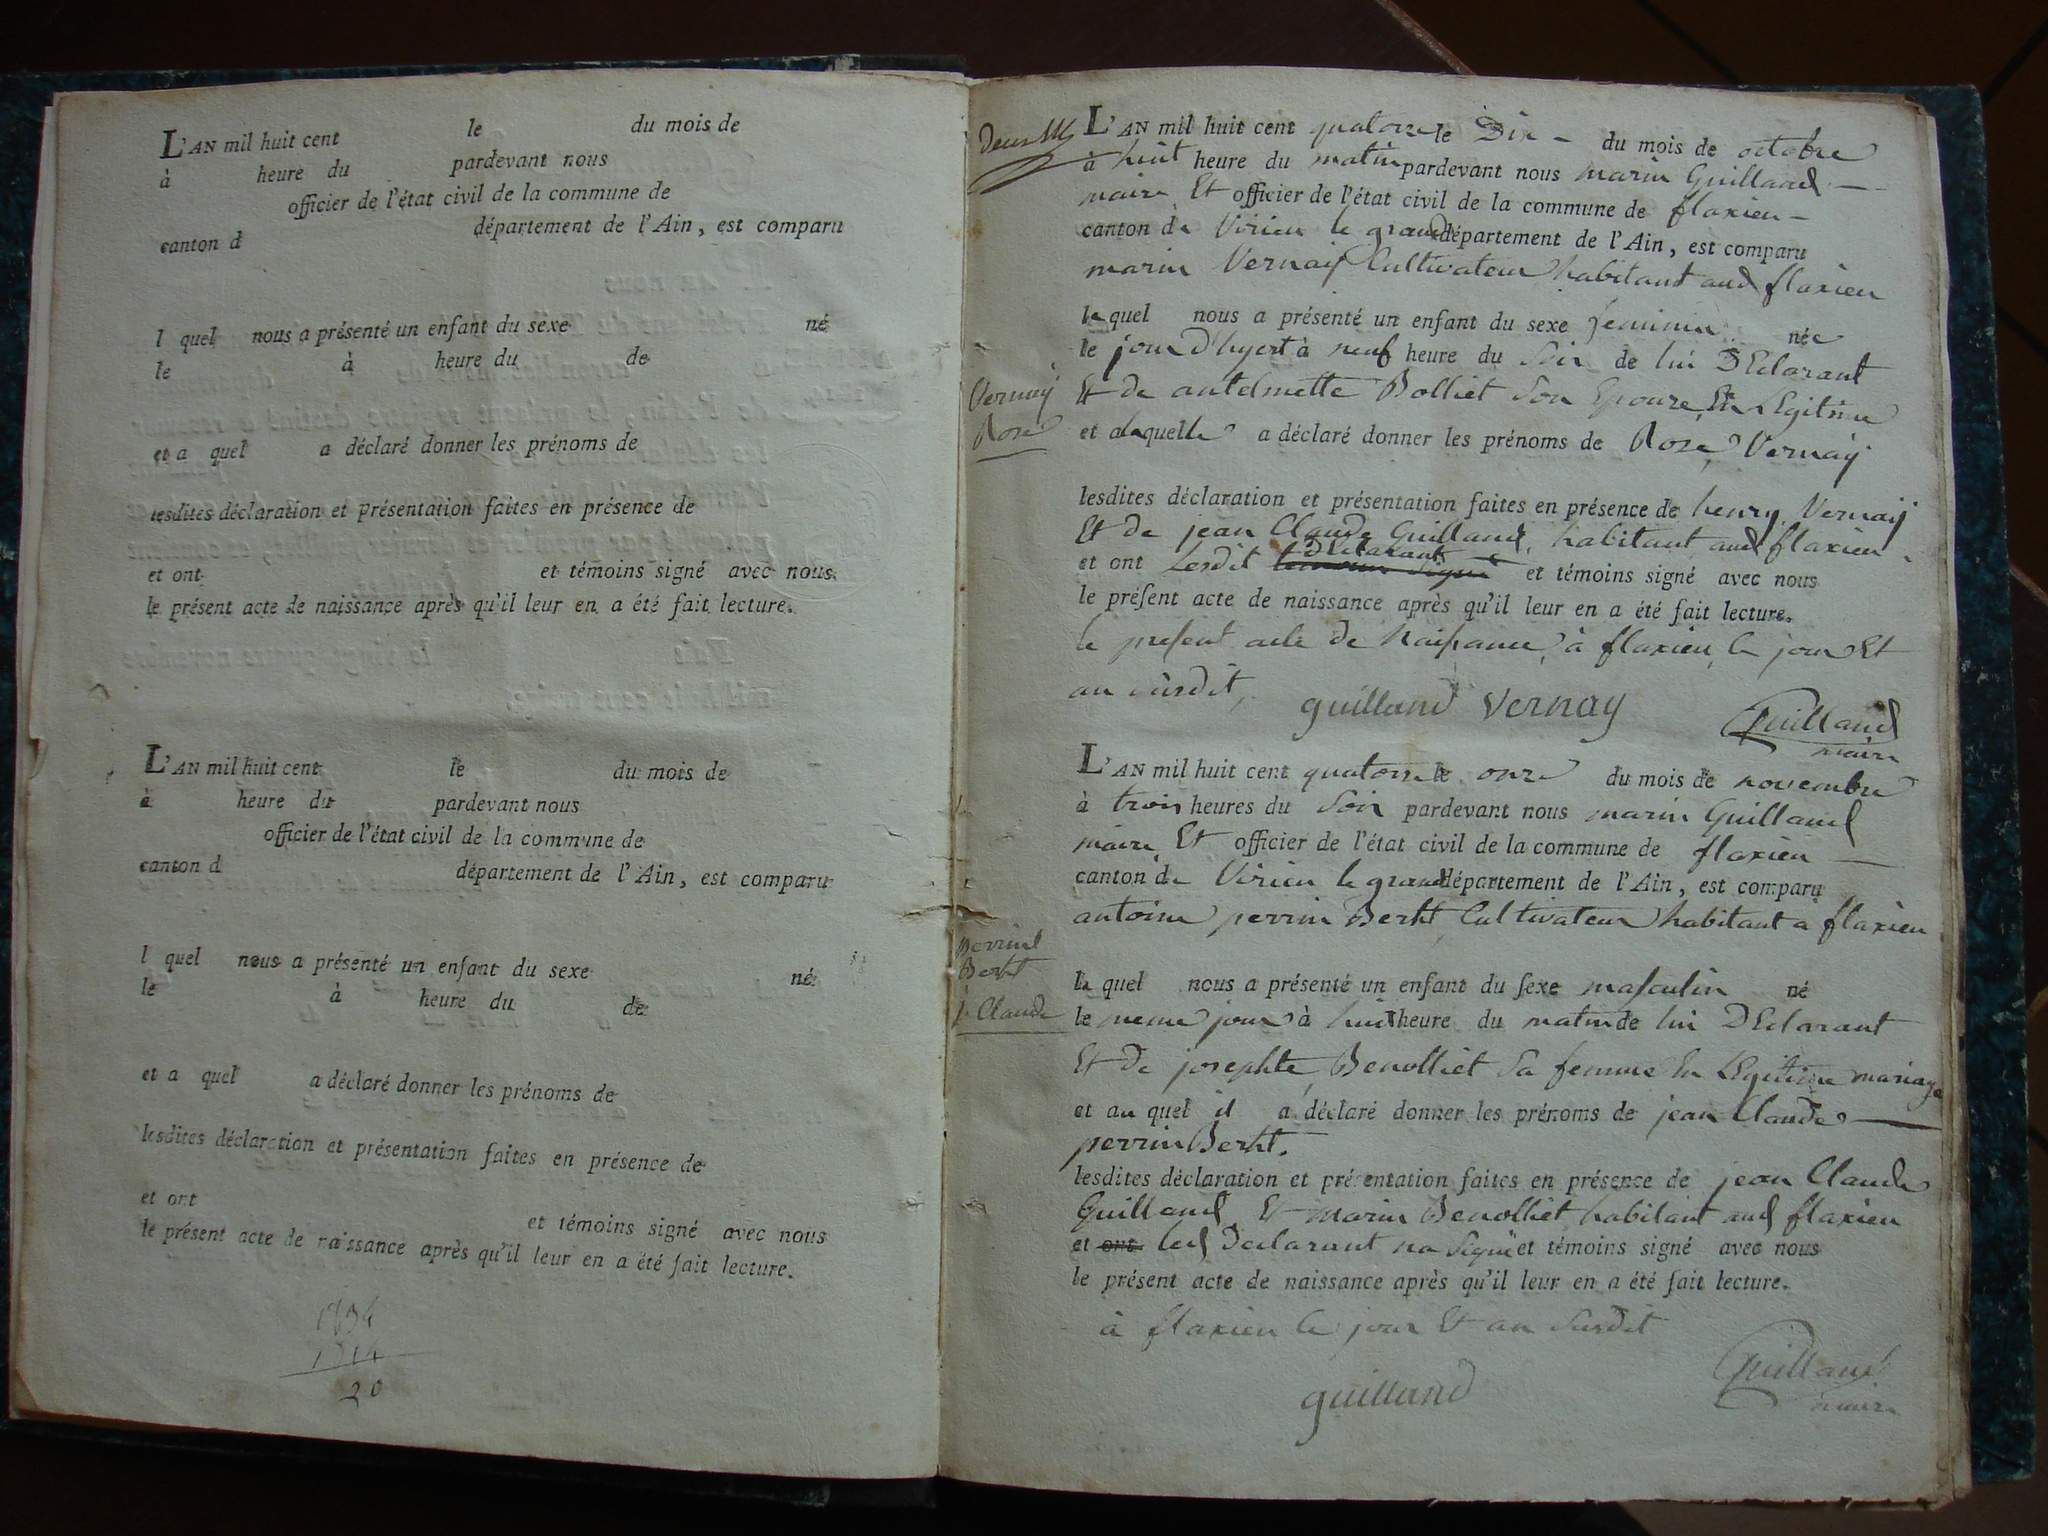 L'AN mil huit cent le du mois de
à heure du pardevant nous
officier de l'état civil de la commune de
canton d département de l'Ain, est comparu
l quel nous a présenté un enfant du sexe né
le à heure du de
et a quel a déclaré donner les prénoms de
lesdites déclaration et présentation faites en présence de
et ont et témoins signé avec nous
le présent acte de naissance après qu'il leur en a été fait lecture.
L'AN mil huit cent le du mois de
à heure du pardevant nous
officier de l'état civil de la commune de
canton d département de l'Ain, est comparu
l quel nous a présenté un enfant du sexe né
le à heure du de
et a quel a déclaré donner les prénoms de
lesdites déclaration et présentation faites en présence de
et ont et témoins signé avec nous
le présent acte de naissance après qu'il leur en a été fait lecture.
1834
1814
20
L'AN mil huit cent quatorze le Dix - du mois de octobre
à huit heure du matin pardevant nous marin Guilland -
maire Et officier de l'état civil de la commune de flaxieu -
canton de Virieu le grand département de l'Ain, est comparu
marin Vernaÿ Cultivateur habitant aud flaxieu
le quel nous a présenté un enfant du sexe feminin née
le jour d'hyert à neuf heure du Soir de lui DEclarant
Vernaÿ
Rose
Et de antelmette Bolliet Son Epouze En LEgitime
et a laquelle a déclaré donner les prénoms de Rose Vernaÿ
lesdites déclaration et présentation faites en présence de henry Vernaÿ
Et de jean Claude Guilland, habitant aud flaxieu
et ont Lesdit declarant et témoins signé avec nous
le présent acte de naissance après qu'il leur en a été fait lecture.
le present acte de Naissance, à flaxieu, le jour Et
an susdit,
guilland vernay Guilland
maire
L'AN mil huit cent quatorze le onze du mois de novembre
à trois heures du Soir pardevant nous marin Guilland
maire Et officier de l'état civil de la commune de flaxieu -
canton de Virieu le grand département de l'Ain, est comparu
antoine perrin Bertet Cultivateur habitant a flaxieu
Perrin
Bertet
j. Claude
le quel nous a présenté un enfant du sexe masculin né
le meme jour à huit heure du matin de lui DEclarant
Et de josephte Benolliet Sa femme En LEgitime mariage
et au quel il a déclaré donner les prénoms de jean Claude -
perrin Bertet.
lesdites déclaration et présentation faites en présence de jean Claude
Guilland Et marin Benolliet habitant aud flaxieu
et ont led Declarant na Signé et témoins signé avec nous
le présent acte de naissance après qu'il leur en a été fait lecture.
à flaxieu le jour Et an Susdit
guilland Guilland
maire